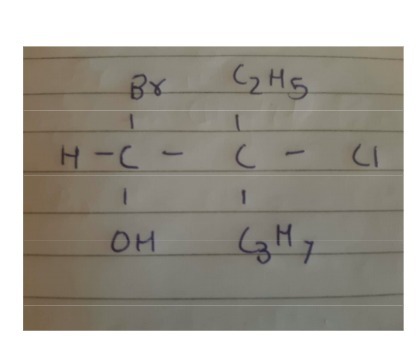 Br C₂H₅
H - C - C - Cl
OH C₃H₇